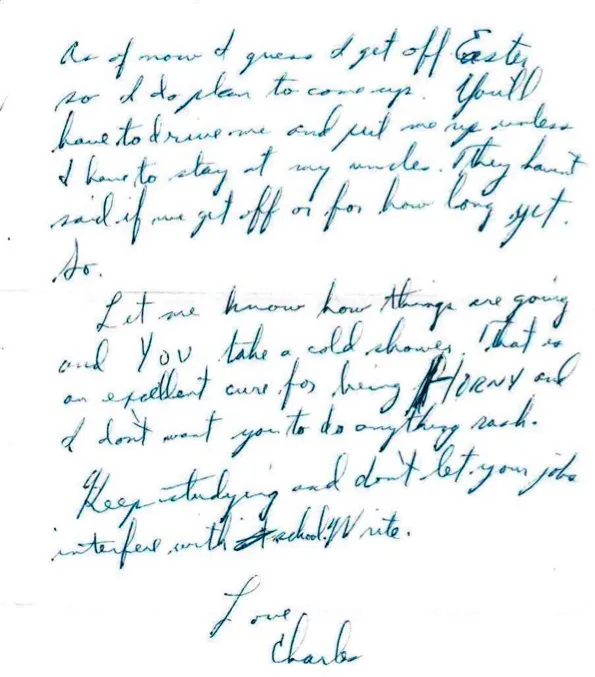 As of now I guess I get off Easter
so I do plan to come up. You'll
have to drive me and put me up unless
I have to stay at my uncles. They havn't
said if we get off or for how long yet.
So.
Let me know how things are going
and YOU take a cold shower. That is
an excellent cure for being HORNY and
I don't want you to do anything rash.
Keep studying and don't let your jobs
interfere with school. Write.
Love
Charles